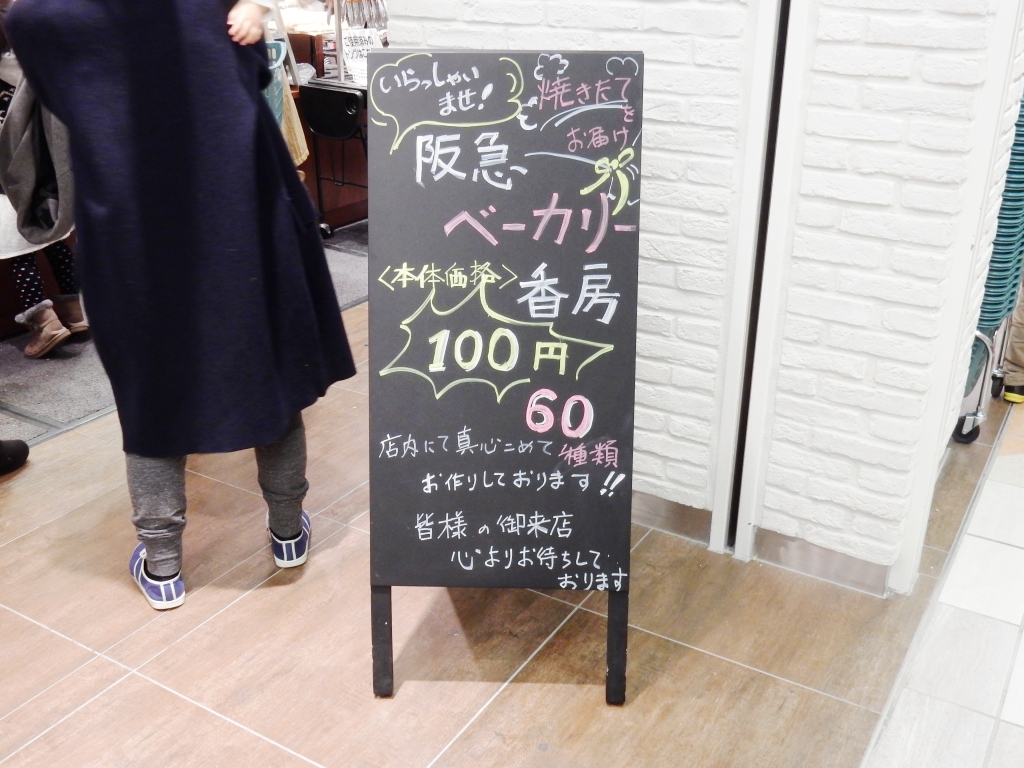 いらっしゃい
ませ!
焼きたて
を
お届け
阪急
ベーカリー
香房
〈本体価格〉
100円
60
種類
店内にて真心こめて
お作りしております!!
皆様の御来店
心よりお待ちして
おります